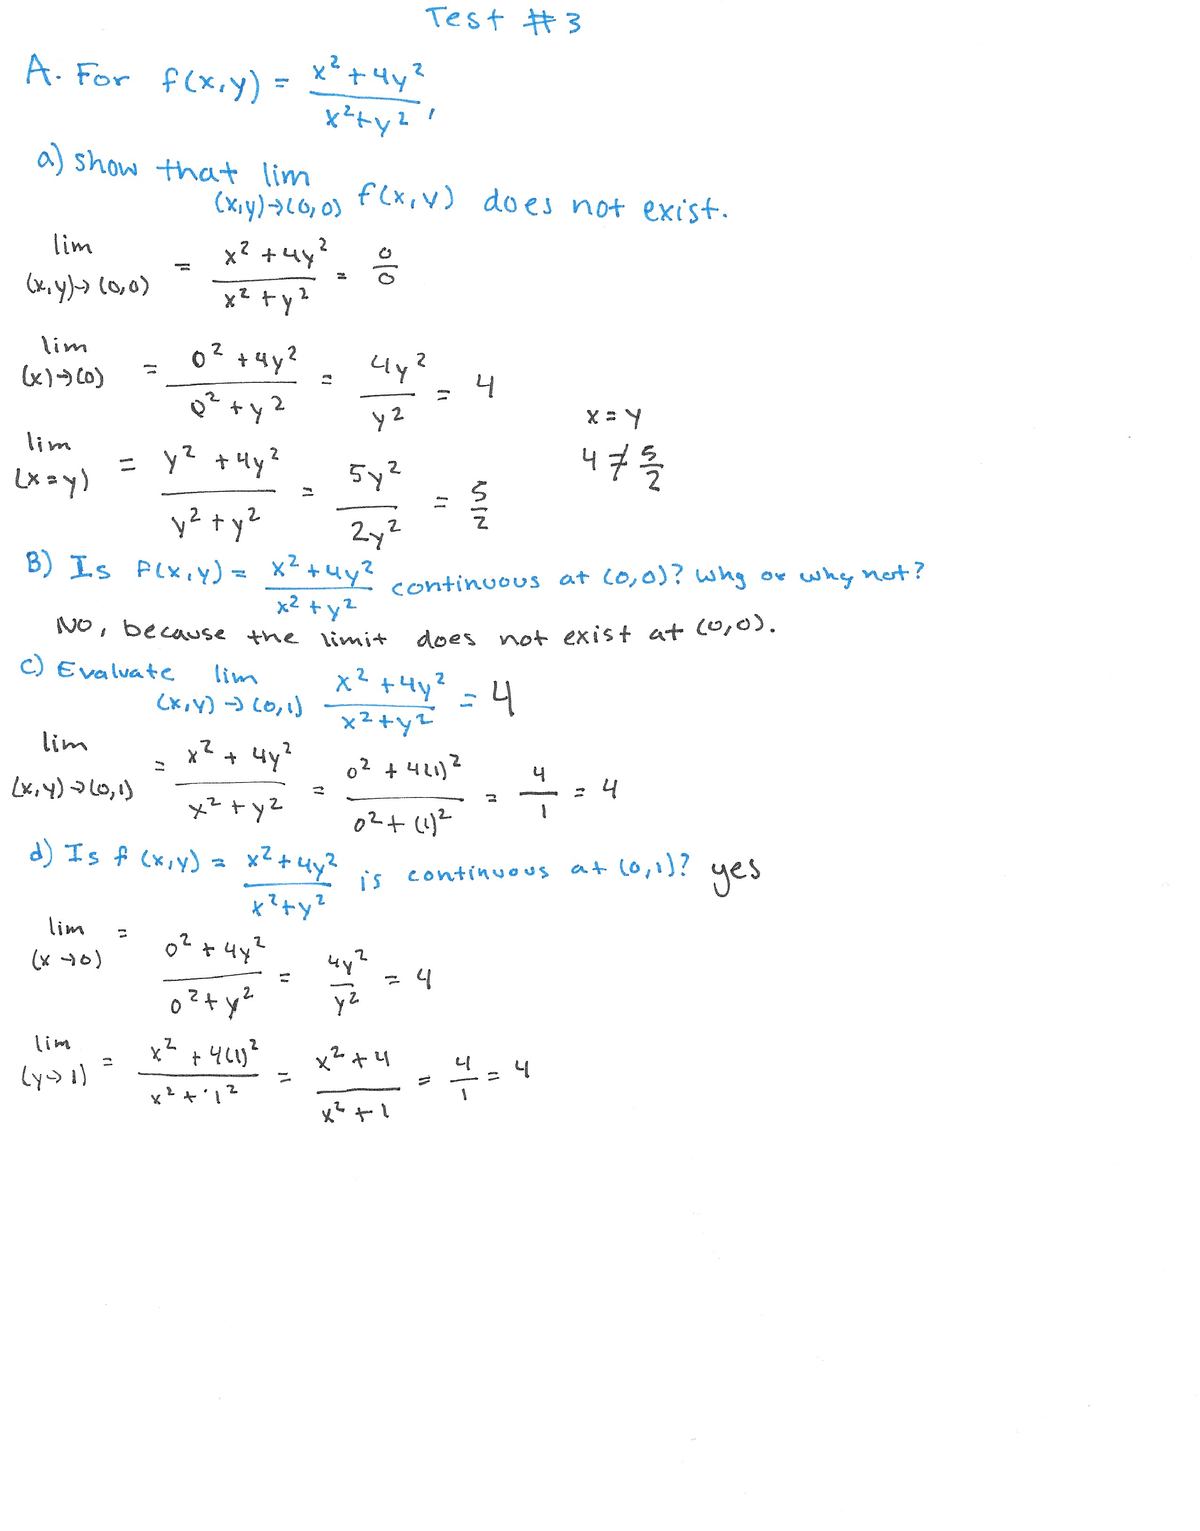 Test #3
A. For f(x,y) = x² + 4y² / x² + y² ,
a) show that lim (x,y)→(0,0) f(x,y) does not exist.
lim (x,y)→(0,0) = x² + 4y² / x² + y² = 0/0
lim (x)→(0) = 0² + 4y² / 0² + y² = 4y² / y² = 4
x = y
lim (x=y) = y² + 4y² / y² + y² = 5y² / 2y² = 5/2
4 ≠ 5/2
B) Is f(x,y) = x² + 4y² / x² + y² continuous at (0,0)? Why or why not?
NO, because the limit does not exist at (0,0).
c) Evaluate lim (x,y)→(0,1) x² + 4y² / x² + y² = 4
lim (x,y)→(0,1) = x² + 4y² / x² + y² = 0² + 4(1)² / 0² + (1)² = 4/1 = 4
d) Is f(x,y) = x² + 4y² / x² + y² is continuous at (0,1)? yes
lim (x→0) = 0² + 4y² / 0² + y² = 4y² / y² = 4
lim (y→1) = x² + 4(1)² / x² + 1² = x² + 4 / x² + 1 = 4/1 = 4